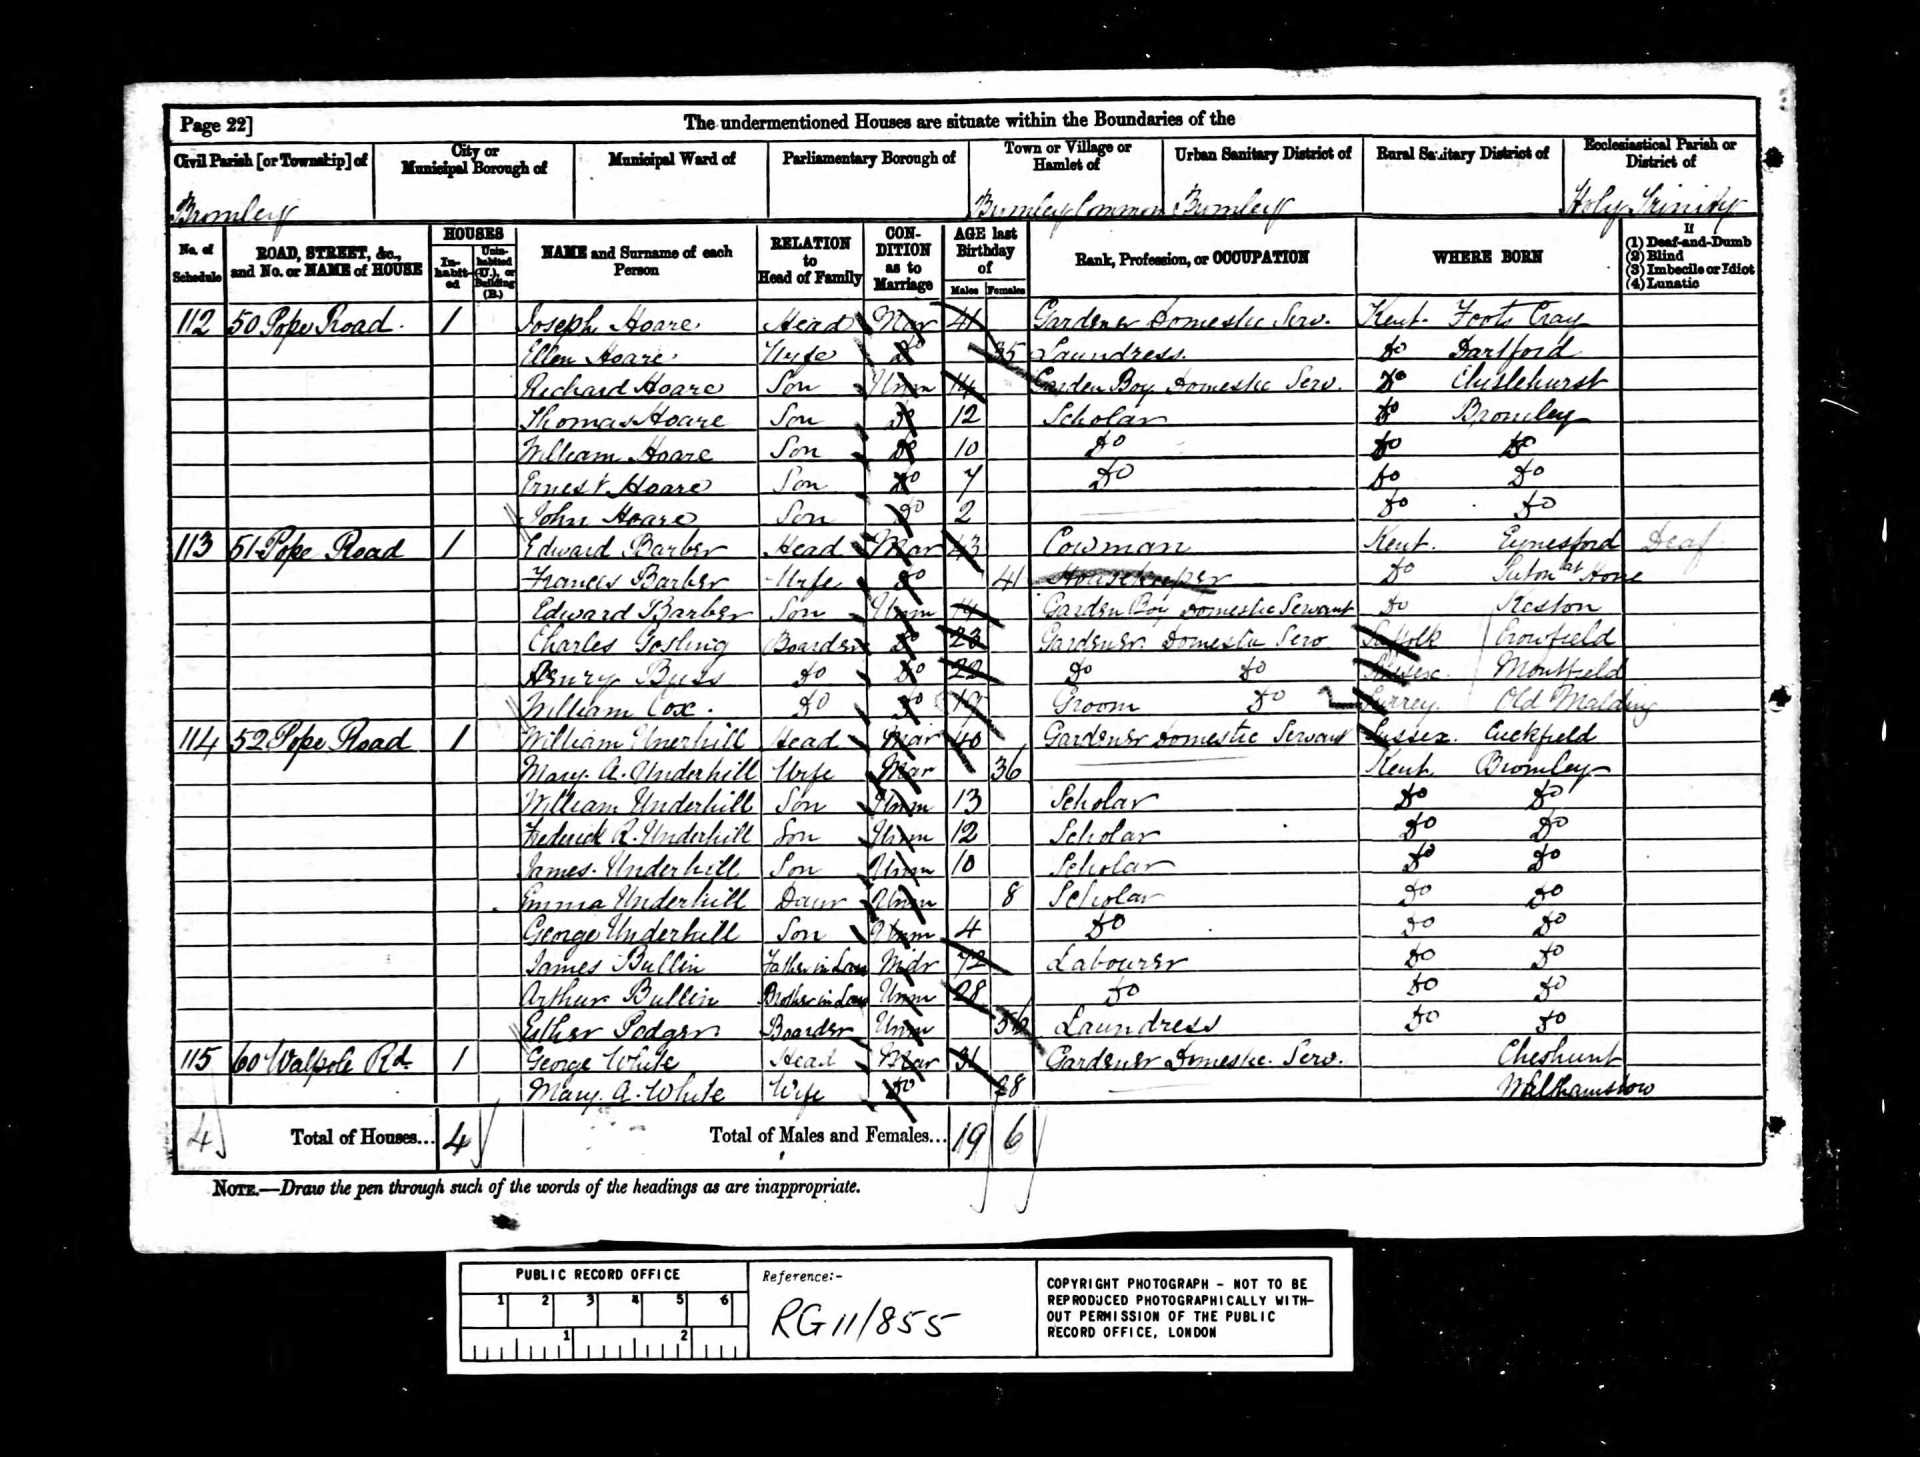 Page 22] The undermentioned Houses are situate within the Boundaries of the
Civil Parish [or Township] of City or Municipal Borough of Municipal Ward of Parliamentary Borough of Town or Village or Hamlet of Urban Sanitary District of Rural Sanitary District of Ecclesiastical Parish or District of
Bromley Bromley Common Bromley Holy Trinity
No. of Schedule ROAD, STREET, &c., and No. or NAME of HOUSE HOUSES Inhabited Uninhabited (U.), or Building (B.) NAME and Surname of each Person RELATION to Head of Family CONDITION as to Marriage AGE last Birthday of Males Females Rank, Profession, or OCCUPATION WHERE BORN If (1) Deaf-and-Dumb (2) Blind (3) Imbecile or Idiot (4) Lunatic
112 50 Pope Road 1 Joseph Hoare Head Mar 41 Gardener Domestic Serv. Kent. Foots Cray
Ellen Hoare Wife Do 35 Laundress Do Dartford
Richard Hoare Son Unm 14 Garden Boy Domestic Serv. Do Chislehurst
Thomas Hoare Son Do 12 Scholar Do Bromley
William Hoare Son Do 10 Do Do Do
Ernest Hoare Son Do 7 Do Do Do
John Hoare Son Do 2 Do Do
113 51 Pope Road 1 Edward Barber Head Mar 43 Cowman Kent. Eynesford Deaf
Francis Barber Wife Do 41 Housekeeper Do Suton at Hone
Edward Barber Son Unm 14 Garden Boy Domestic Servant Do Keston
Charles Gosling Boarder Do 23 Gardener Domestic Serv Suffolk Crowfield
Henry Do Do 22 Do Do Sussex Mountfield
William Cox. Do Do 19 Groom Do Surrey Old Malding
114 52 Pope Road 1 William Unerhill Head Mar 40 Gardener Domestic Servant Sussex. Cuckfield
Mary. A. Underhill Wife Mar 36 Kent Bromley
William Underhill Son Unm 13 Scholar Do Do
Frederick R. Underhill Son Unm 12 Scholar Do Do
James. Underhill Son Unm 10 Scholar Do Do
Emma Underhill Daur Unm 8 Scholar Do Do
George Underhill Son Unm 4 Do Do Do
James Bullin Father in Law Widr 72 Labourer Do Do
Arthur Bullin Brother in Law Unm 28 Do Do Do
Esther Podger Boarder Unm 56 Laundress Do Do
115 60 Walpole Rd 1 George White Head Mar 31 Gardener Domestic Serv. Cheshunt
Mary. A. White Wife Do 28 Walthamstow
4 Total of Houses... 4 Total of Males and Females... 19 6
NOTE.—Draw the pen through such of the words of the headings as are inappropriate.
PUBLIC RECORD OFFICE
1 2 3 4 5 6
1 2
Reference:-
RG 11/855
COPYRIGHT PHOTOGRAPH - NOT TO BE
REPRODUCED PHOTOGRAPHICALLY WITH-
OUT PERMISSION OF THE PUBLIC
RECORD OFFICE, LONDON